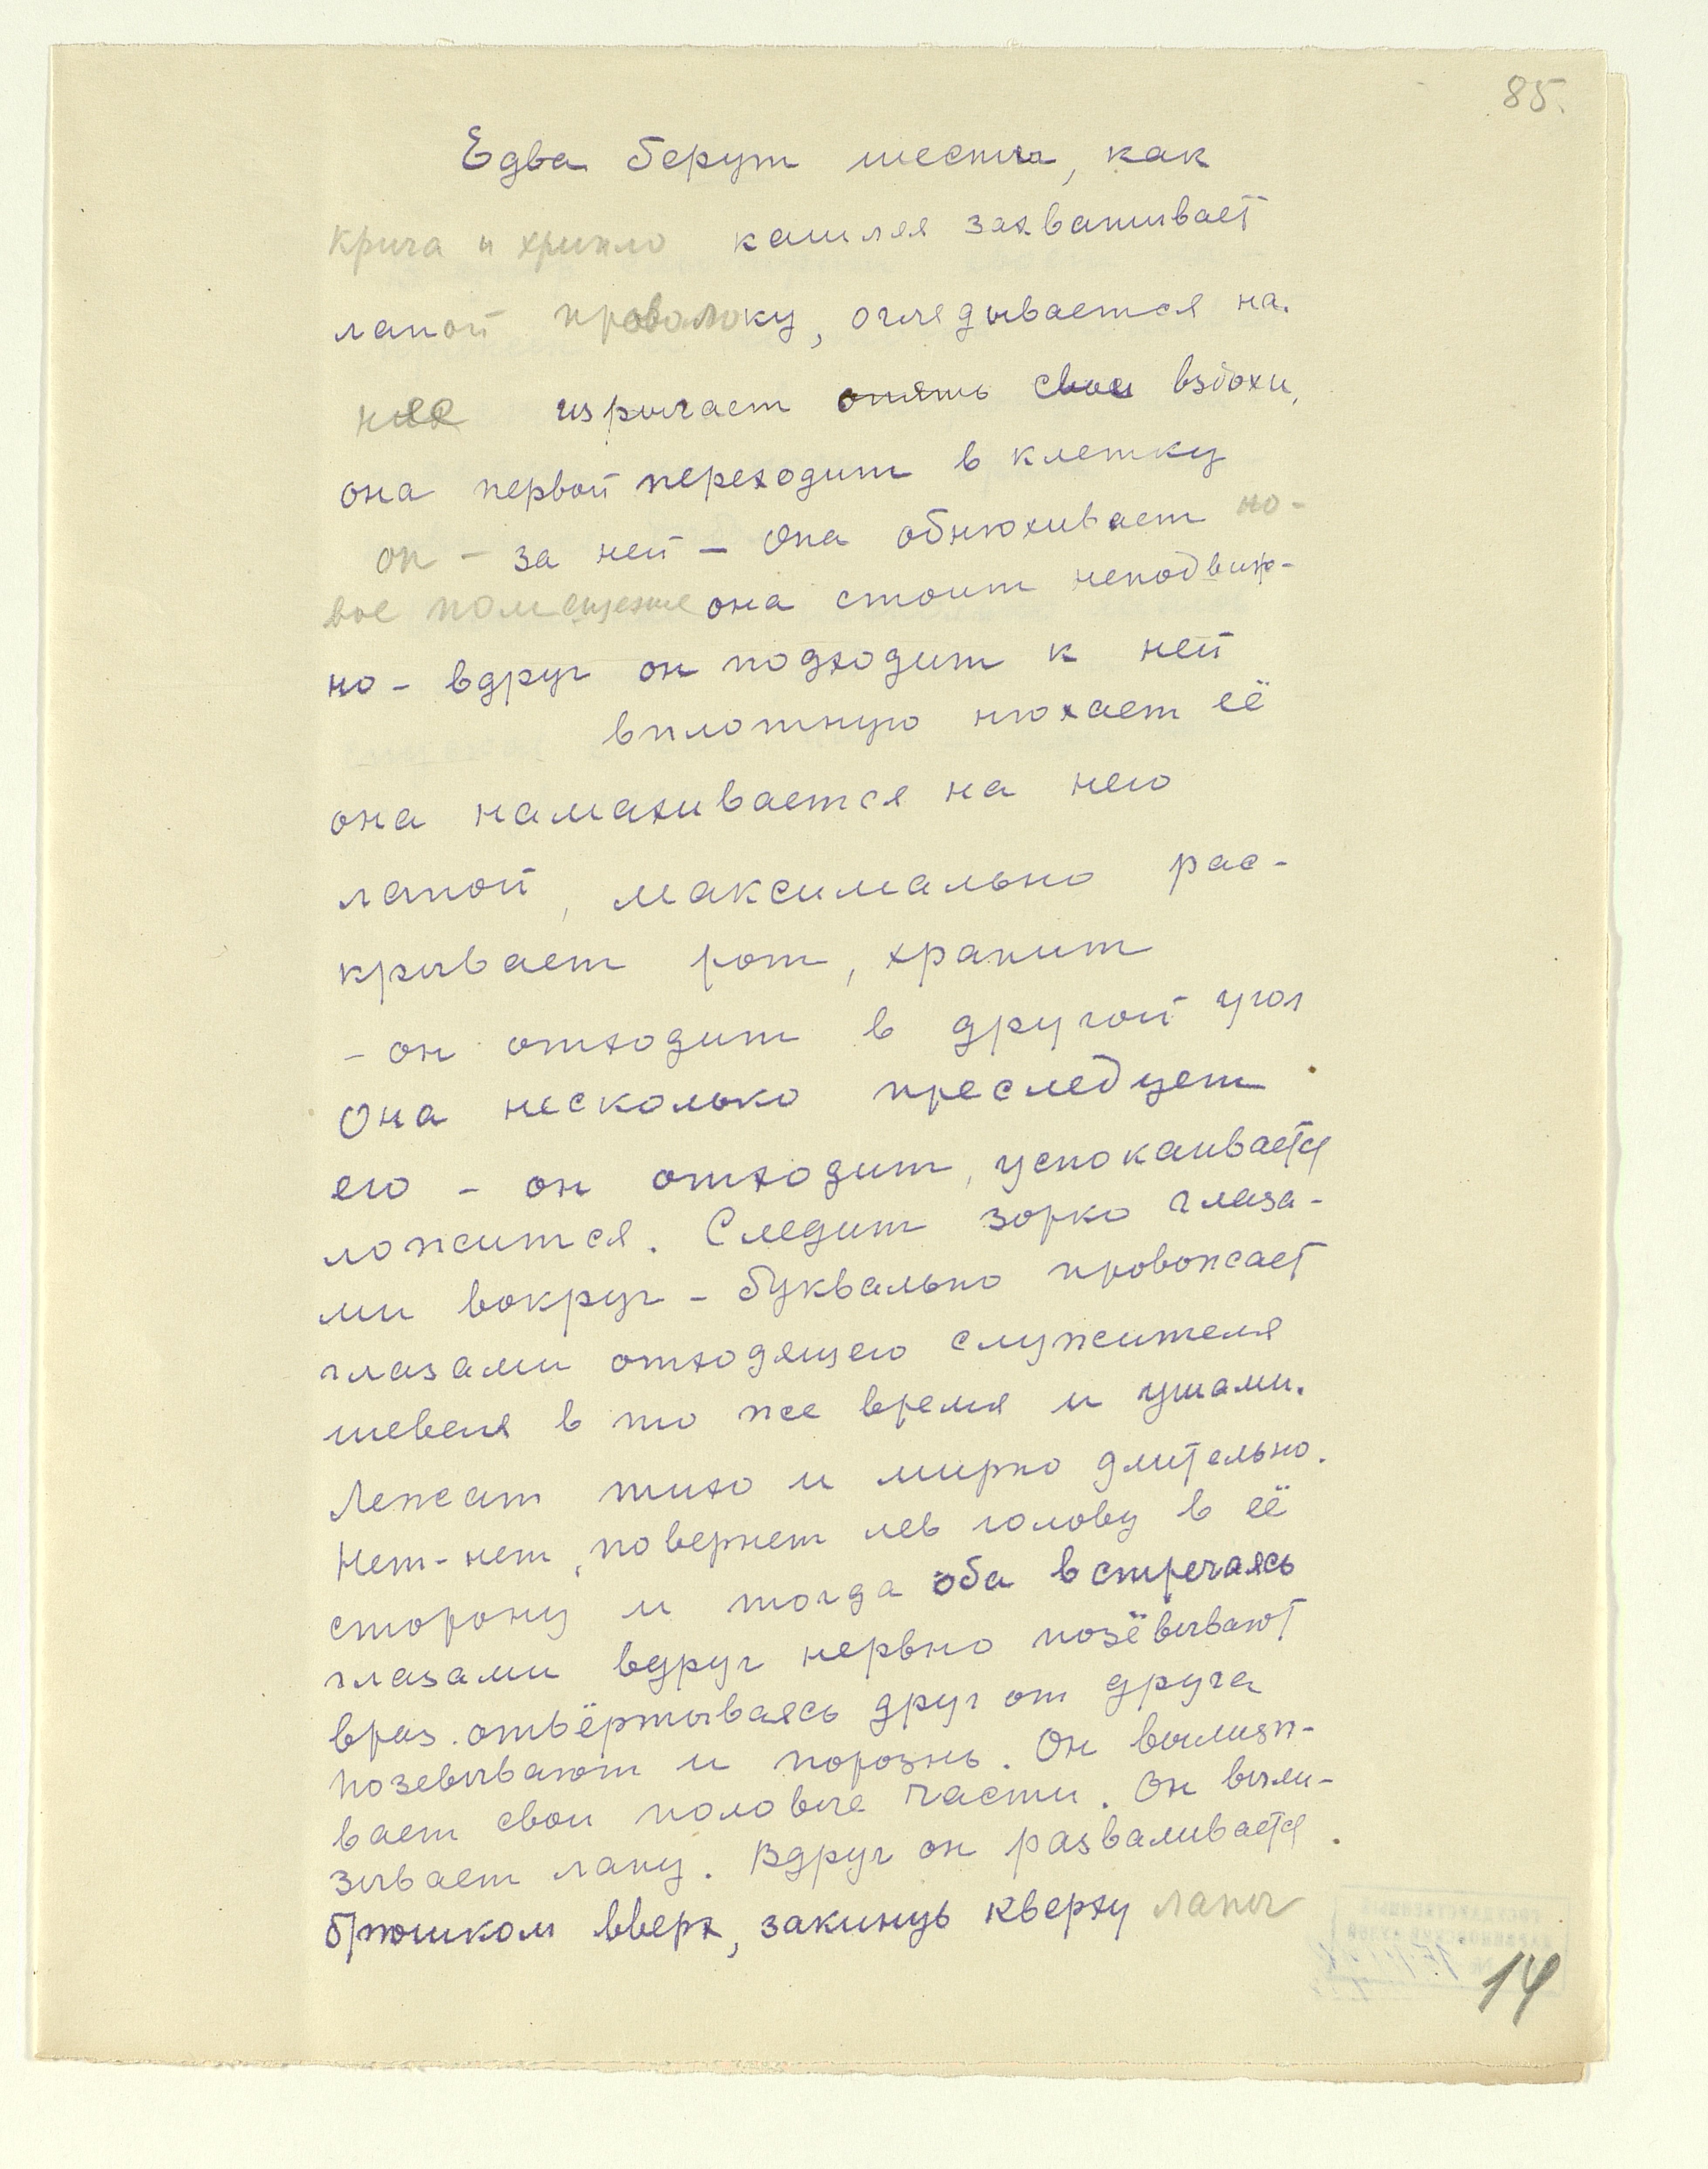 85.
Едва берут шесты, как
крича и хрипло кашляя захватывает
лапой проволоку, оглядывается на.
нее изрыгает опять свои вздохи,
она первой переходит в клетку
он - за ней - Она обнюхивает но-
вое помещение она стоит неподвиж-
но - вдруг он подходит к ней
вплотную нюхает её
она намахивается на него
лапой, максимально рас-
крывает рот, храпит
- он отходит в другой угол
Она несколько преследует
его - он отходит, успокаивается
ложится. Следит зорко глаза-
ми вокруг - буквально провожает
глазами отходящего служителя
шевеля в то же время и ушами.
Лежат тихо и мирно длительно.
Нет-нет, повернет лев голову в её
сторону и тогда оба встречаясь
глазами вдруг нервно позёвывают
враз. отвёртываясь друг от друга
позевывают и порознь. Он вылизы-
вает свои половые части. Он выли-
зывает лапу. Вдруг он разваливается.
брюшком вверх, закинув кверху лапы
14